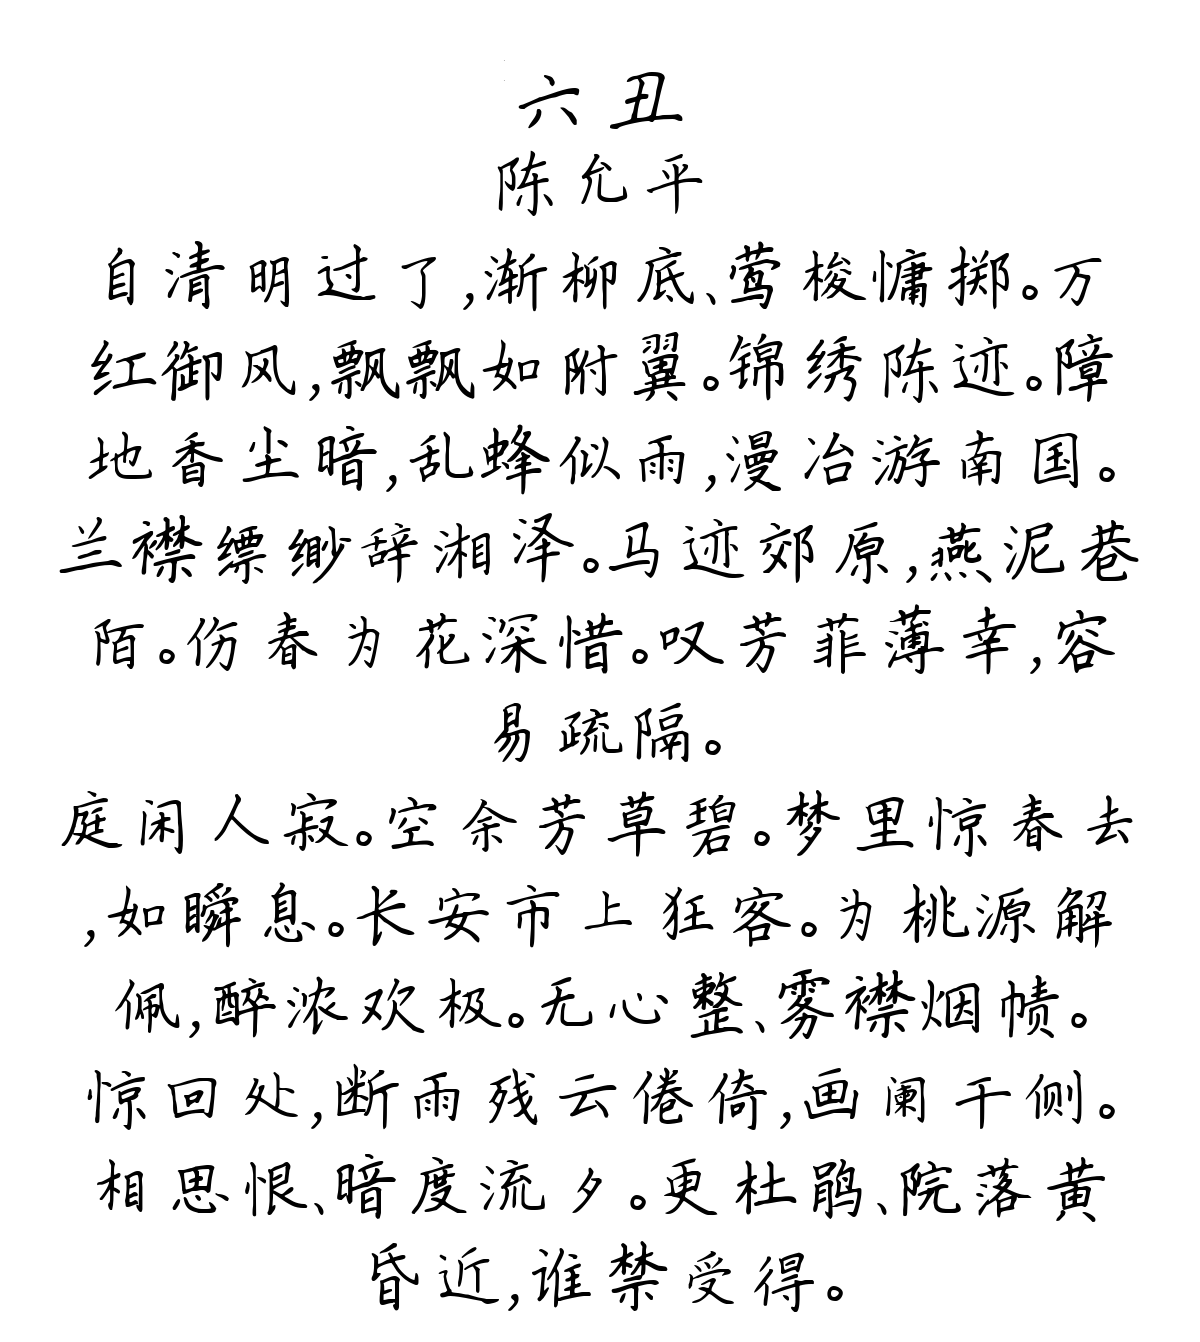 六丑
陈允平
自清明过了,渐柳底、莺梭慵掷。万
红御风,飘飘如附翼。锦绣陈迹。障
地香尘暗,乱蜂似雨,漫冶游南国。
兰襟缥缈辞湘泽。马迹郊原,燕泥巷
陌。伤春为花深惜。叹芳菲薄幸,容
易疏隔。
庭闲人寂。空余芳草碧。梦里惊春去
,如瞬息。长安市上狂客。为桃源解
佩,醉浓欢极。无心整、雾襟烟帻。
惊回处,断雨残云倦倚,画阑干侧。
相思恨、暗度流夕。更杜鹃、院落黄
昏近,谁禁受得。